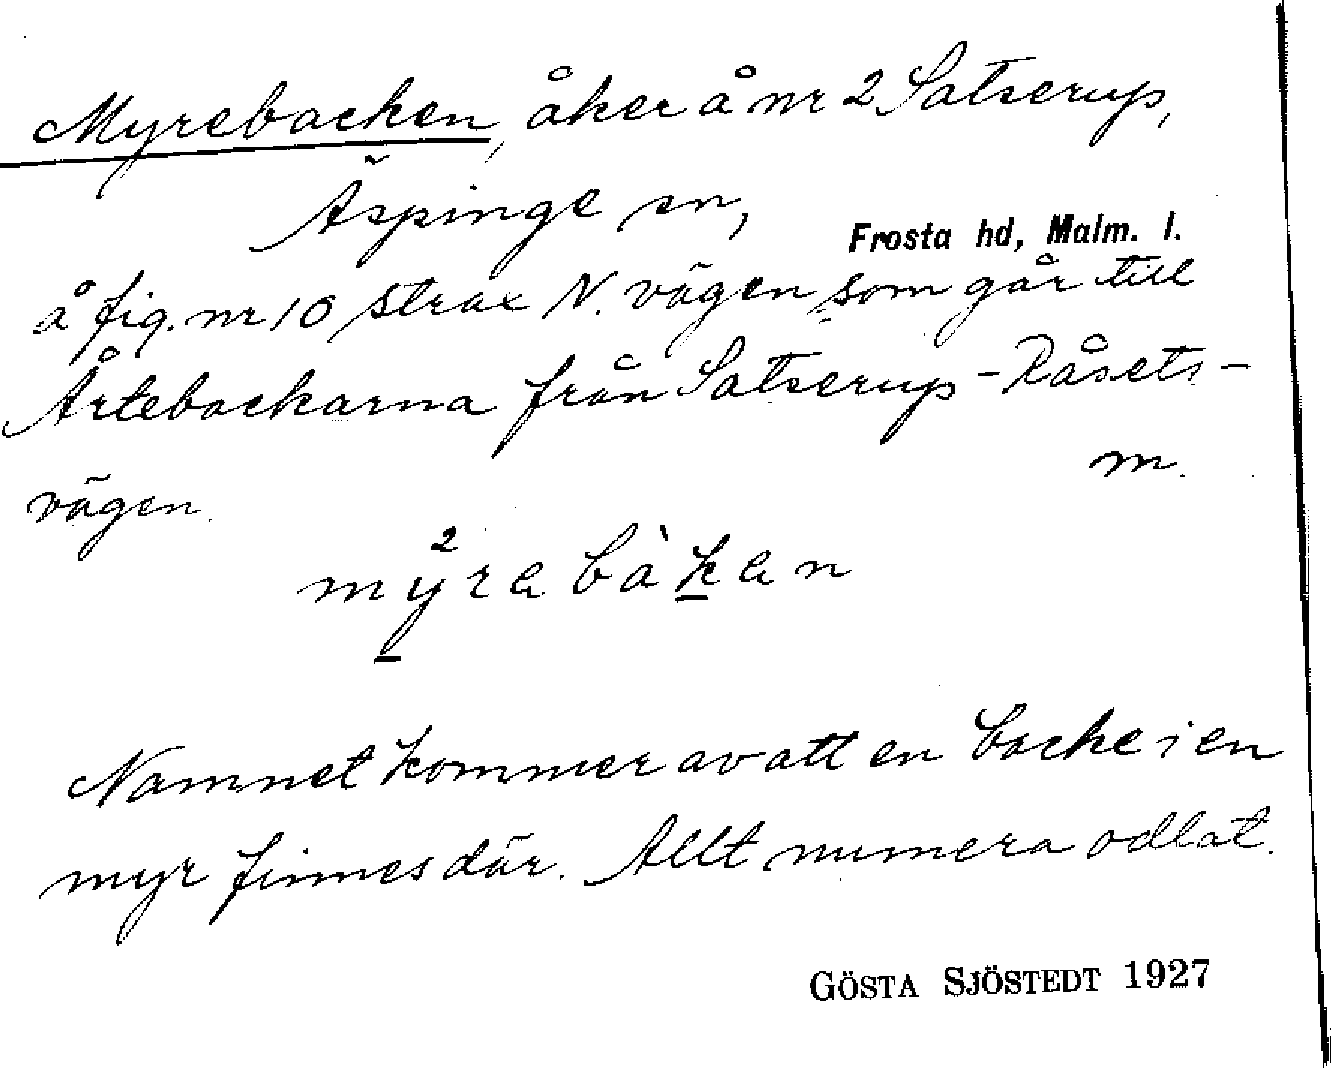 Myrebacken, åker å nr 2 Satserup,
Äspinge sn,
Frosta hd, Malm. l.
å fig. nr 10 strax N. vägen som går till
Årtebackarna från Satserup - Råsets-
vägen. m.
mȳ²ra bàkan
Namnet kommer av att en backe i en
myr finnes där. Allt numera odlat.
GÖSTA SJÖSTEDT 1927